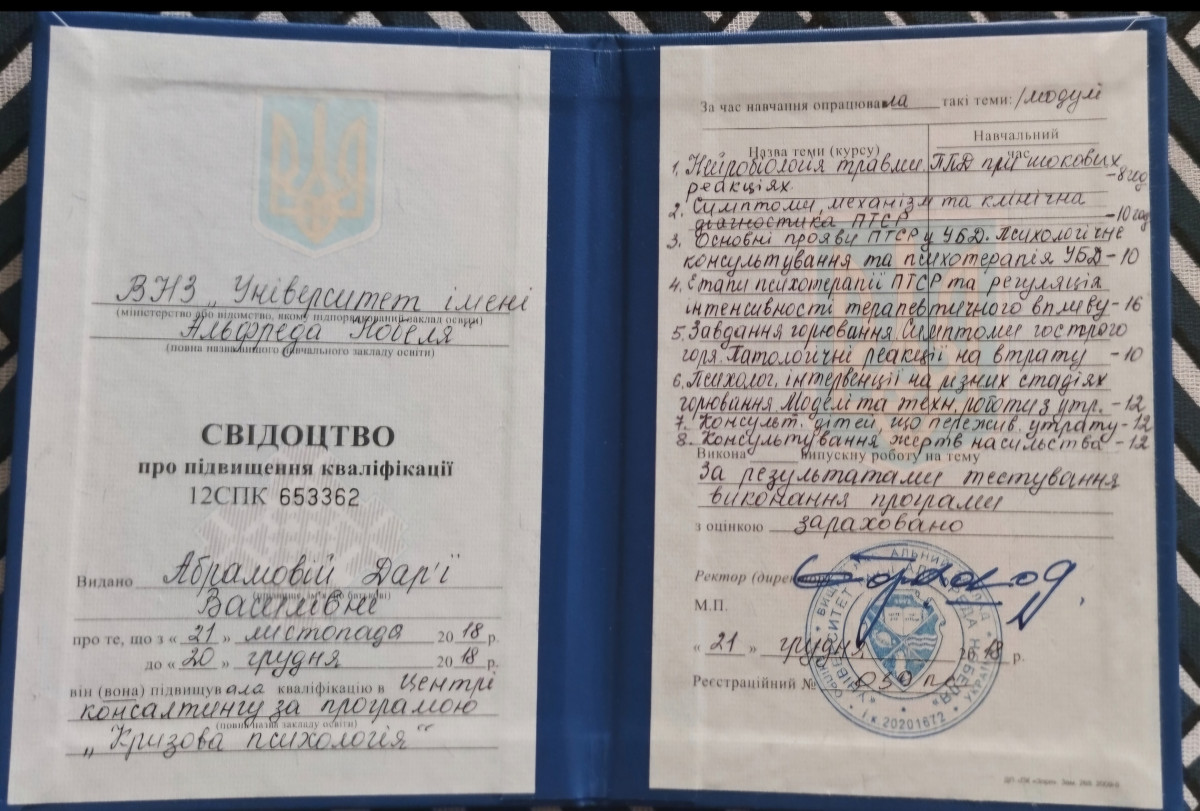 ВНЗ „Університет імені
(міністерство або відомство, якому підпорядкований заклад освіти)
Альфреда Нобеля"
(повна назва вищого навчального закладу освіти)
СВІДОЦТВО
про підвищення кваліфікації
12СПК 653362
Видано Абрамовій Дар'ї
Василівні
про те, що з « 21 » листопада 2018 р.
до « 20 » грудня 2018 р.
він (вона) підвищувала кваліфікацію в Центрі
консалтингу за програмою
(повна назва закладу освіти)
„Кризова психологія"
За час навчання опрацювала такі теми: /модулі
Назва теми (курсу)
Навчальний
час
1. Нейробіологія травми. ППД при шокових
реакціях. -8год
2. Симптоми, механізм та клінічна
діагностика ПТСР -10год
3. Основні прояви ПТСР у УБД. Психологічне
консультування та психотерапія УБД-10
4. Етапи психотерапії ПТСР та регуляція
інтенсивності терапевтичного впливу-16
5. Завдання горювання. Симптоми гострого
горя. Патологічні реакції на втрату -10
6. Психолог. інтервенції на різних стадіях
горювання. Моделі та техн. роботи з утр. -12
7. Консульт. дітей, що пережив. утрату-12
8. Консультування жертв насильства-12
Викона випускну роботу на тему
За результатами тестування
виконання програми
з оцінкою зараховано
Ректор
М.П.
« 21 » грудня 2018 р.
Реєстраційний №
і.к 20201672